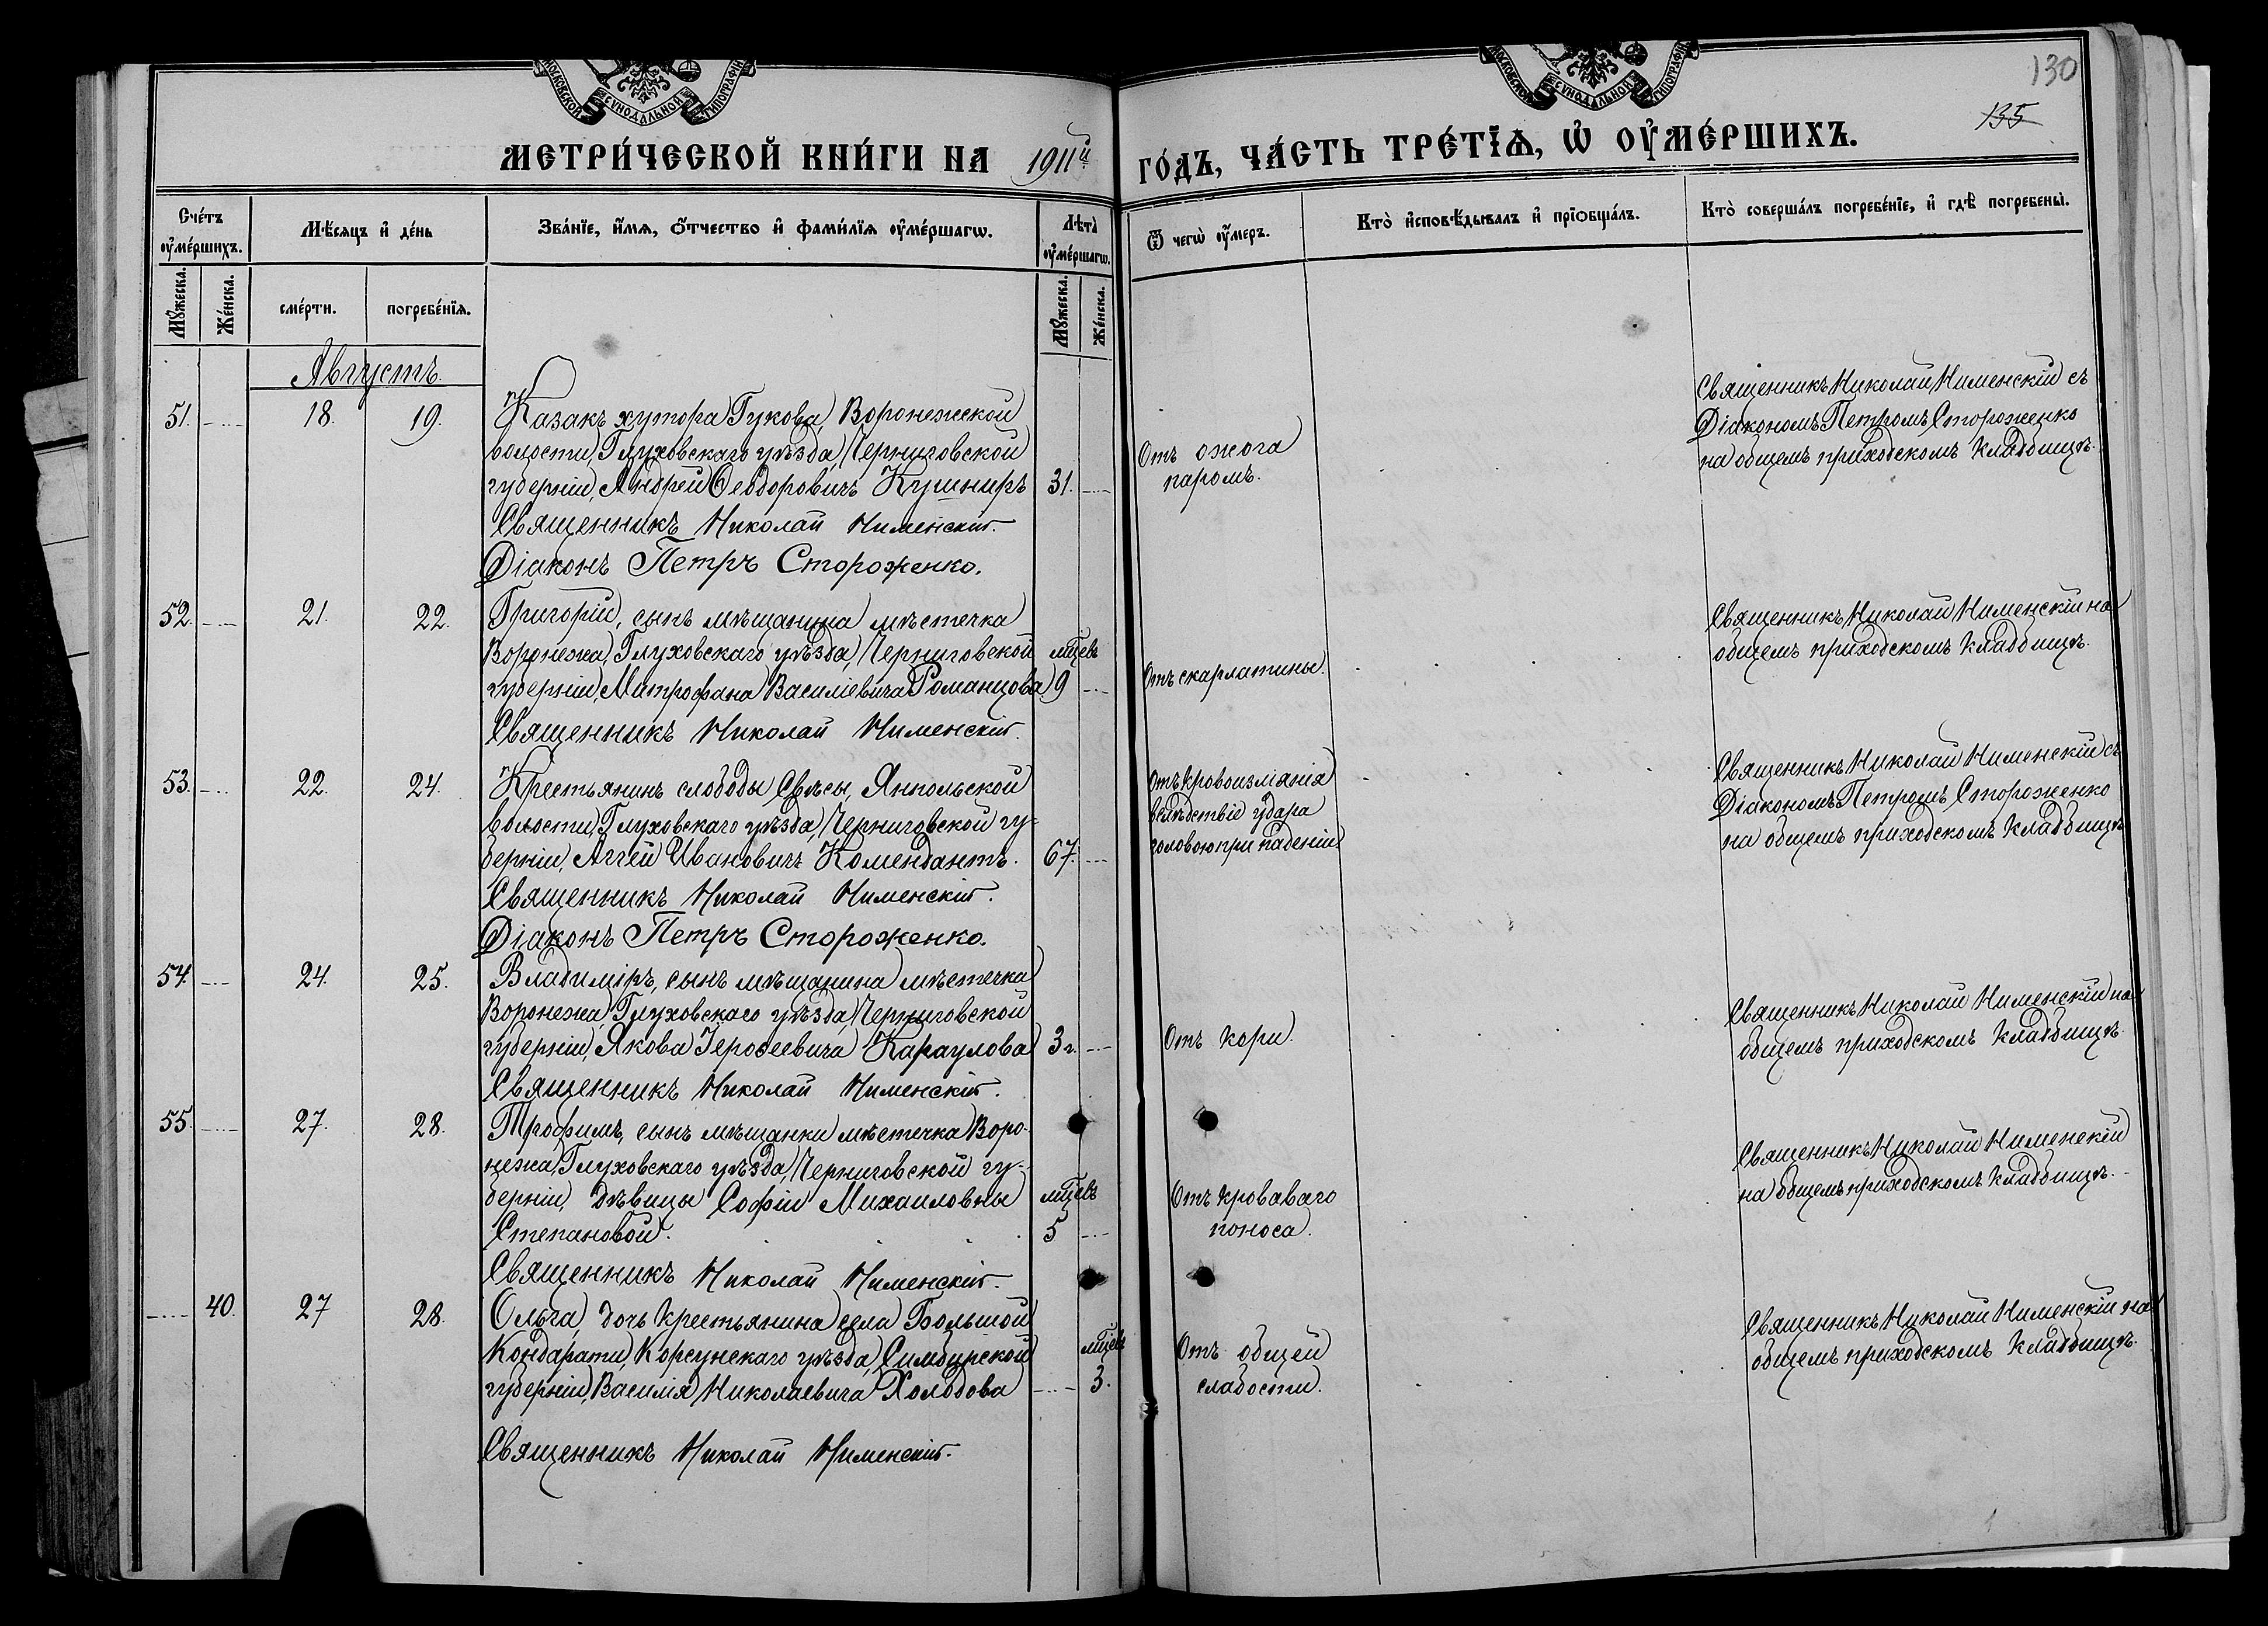 МОСКОВСКОЙ СУНОДАЛЬНОЙ ТИПОГРАФІИ
МОСКОВСКОЙ СУНОДАЛЬНОЙ ТИПОГРАФІИ
130
135
МЕТРИ́ЧЕСКОЙ КНИ́ГИ НА 1911й ГО́ДЪ, ЧА́СТЬ ТРЕ́ТІѦ, Ѡ҆ ОУ҆МЕ́РШИХЪ.
Сче́тъ оу҆ме́ршихъ.
Мѣ́сяцъ и҆ де́нь
Зва́нїе, и҆́мѧ, ѻ҆́тчество и҆ фами́лїѧ оу҆ме́ршагѡ.
Лѣта̀ оу҆ме́ршагѡ.
Ѿ чегѡ̀ оу҆́меръ.
Кто̀ и҆сповѣ́дывалъ и҆ прїѻбща́лъ.
Кто̀ соверша́лъ погребе́нїе, и҆ гдѣ̀ погребены̀.
Мꙋ́жеска.
Же́нска.
сме́рти.
погребе́нїѧ.
Мꙋ́жеска.
Же́нска.
Августъ.
51. 18. 19. Казакъ хутора Гукова, Воронежской
волости, Глуховскаго уѣзда, Черниговской
губерніи, Андрей Ѳеодоровичъ Кушниръ 31.
Священникъ Николай Нименскій.
Діаконъ Петръ Стороженко.
Отъ ожога
паромъ.
Священникъ Николай Нименскій съ
Діакономъ Петромъ Стороженко
на общемъ приходскомъ кладбищѣ.
52. 21. 22. Григорій, сынъ мѣщанина мѣстечка
Воронежа, Глуховскаго уѣзда, Черниговской мцевъ
губерніи, Митрофана Василіевича Романцова 9
Священникъ Николай Нименскій.
Отъ скарлатины.
Священникъ Николай Нименскій на
общемъ приходскомъ кладбищѣ.
53. 22. 24. Крестьянинъ слободы Свѣсы, Янпольской
волости, Глуховскаго уѣзда, Черниговской гу-
берніи, Аггей Ивановичъ Комендантъ. 67.
Священникъ Николай Нименскій.
Діаконъ Петръ Стороженко.
Отъ кровоизліянія
вслѣдствіе удара
головою при паденіи.
Священникъ Николай Нименскій съ
Діакономъ Петромъ Стороженко
на общемъ приходскомъ кладбищѣ
54. 24. 25. Владиміръ, сынъ мѣщанина мѣстечка
Воронежа, Глуховскаго уѣзда, Черниговской
губерніи, Якова Іероѳеевича Караулова 3 г.
Священникъ Николай Нименскій.
Отъ кори.
Священникъ Николай Нименскій на
общемъ приходскомъ кладбищѣ
55. 27. 28. Трофимъ, сынъ мѣщанки мѣстечка Воро-
нежа, Глуховскаго уѣзда, Черниговской гу-
берніи, дѣвицы Софіи Михаиловны мцевъ
Степановой. 5
Священникъ Николай Нименскій.
Отъ кроваваго
поноса.
Священникъ Николай Нименскій
на общемъ приходскомъ кладбищѣ.
40. 27 28. Ольга, дочь крестьянина села Большой
Кондарати, Корсунскаго уѣзда, Симбирской мцевъ
губерніи, Василія Николаевича Холодова 3.
Священникъ Николай Нименскій.
Отъ общей
слабости.
Священникъ Николай Нименскій на
общемъ приходскомъ кладбищѣ.